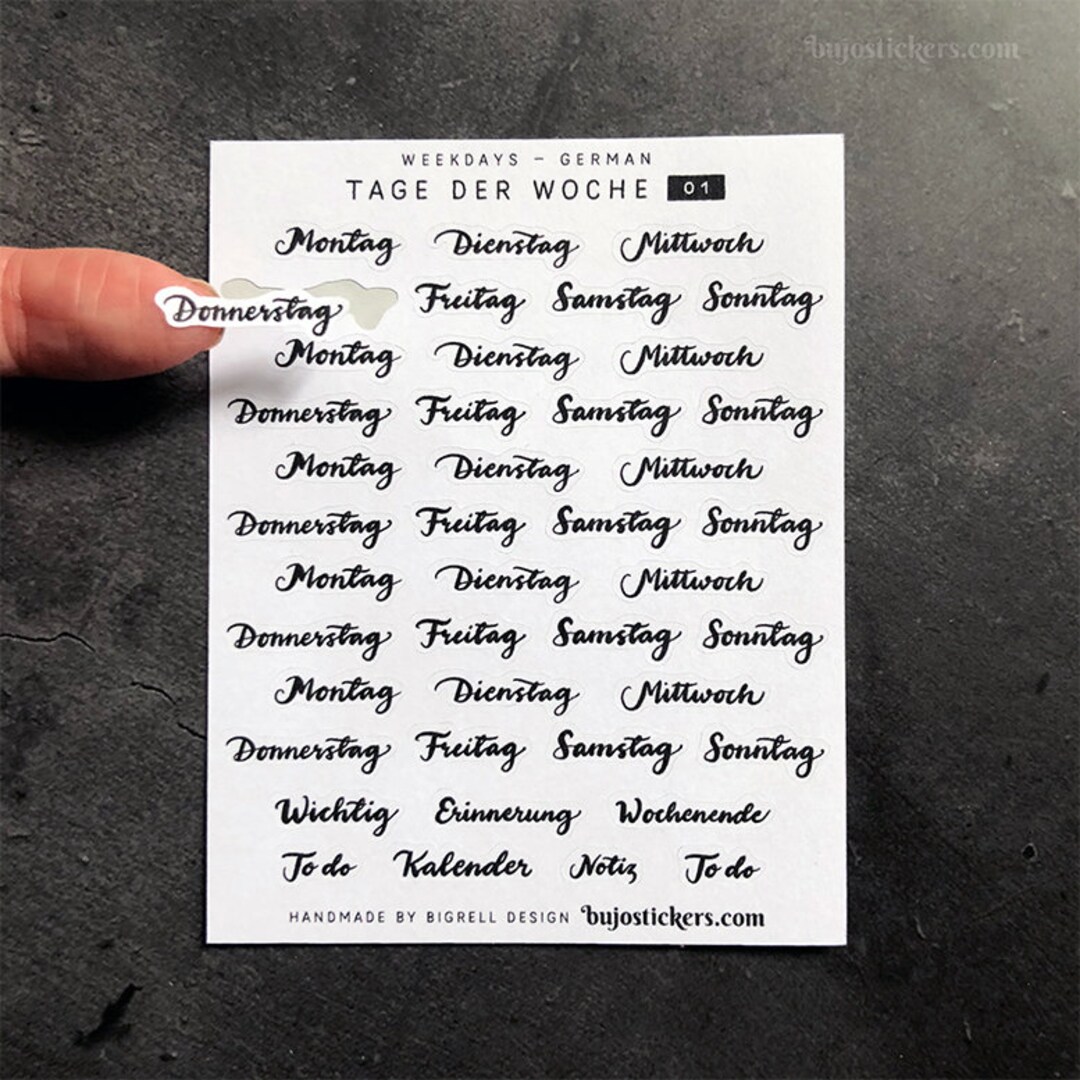 bujostickers.com
WEEKDAYS – GERMAN
TAGE DER WOCHE 01
Montag Dienstag Mittwoch
Donnerstag Freitag Samstag Sonntag
Montag Dienstag Mittwoch
Donnerstag Freitag Samstag Sonntag
Montag Dienstag Mittwoch
Donnerstag Freitag Samstag Sonntag
Montag Dienstag Mittwoch
Donnerstag Freitag Samstag Sonntag
Montag Dienstag Mittwoch
Donnerstag Freitag Samstag Sonntag
Wichtig Erinnerung Wochenende
To do Kalender Notiz To do
HANDMADE BY BIGRELL DESIGN bujostickers.com